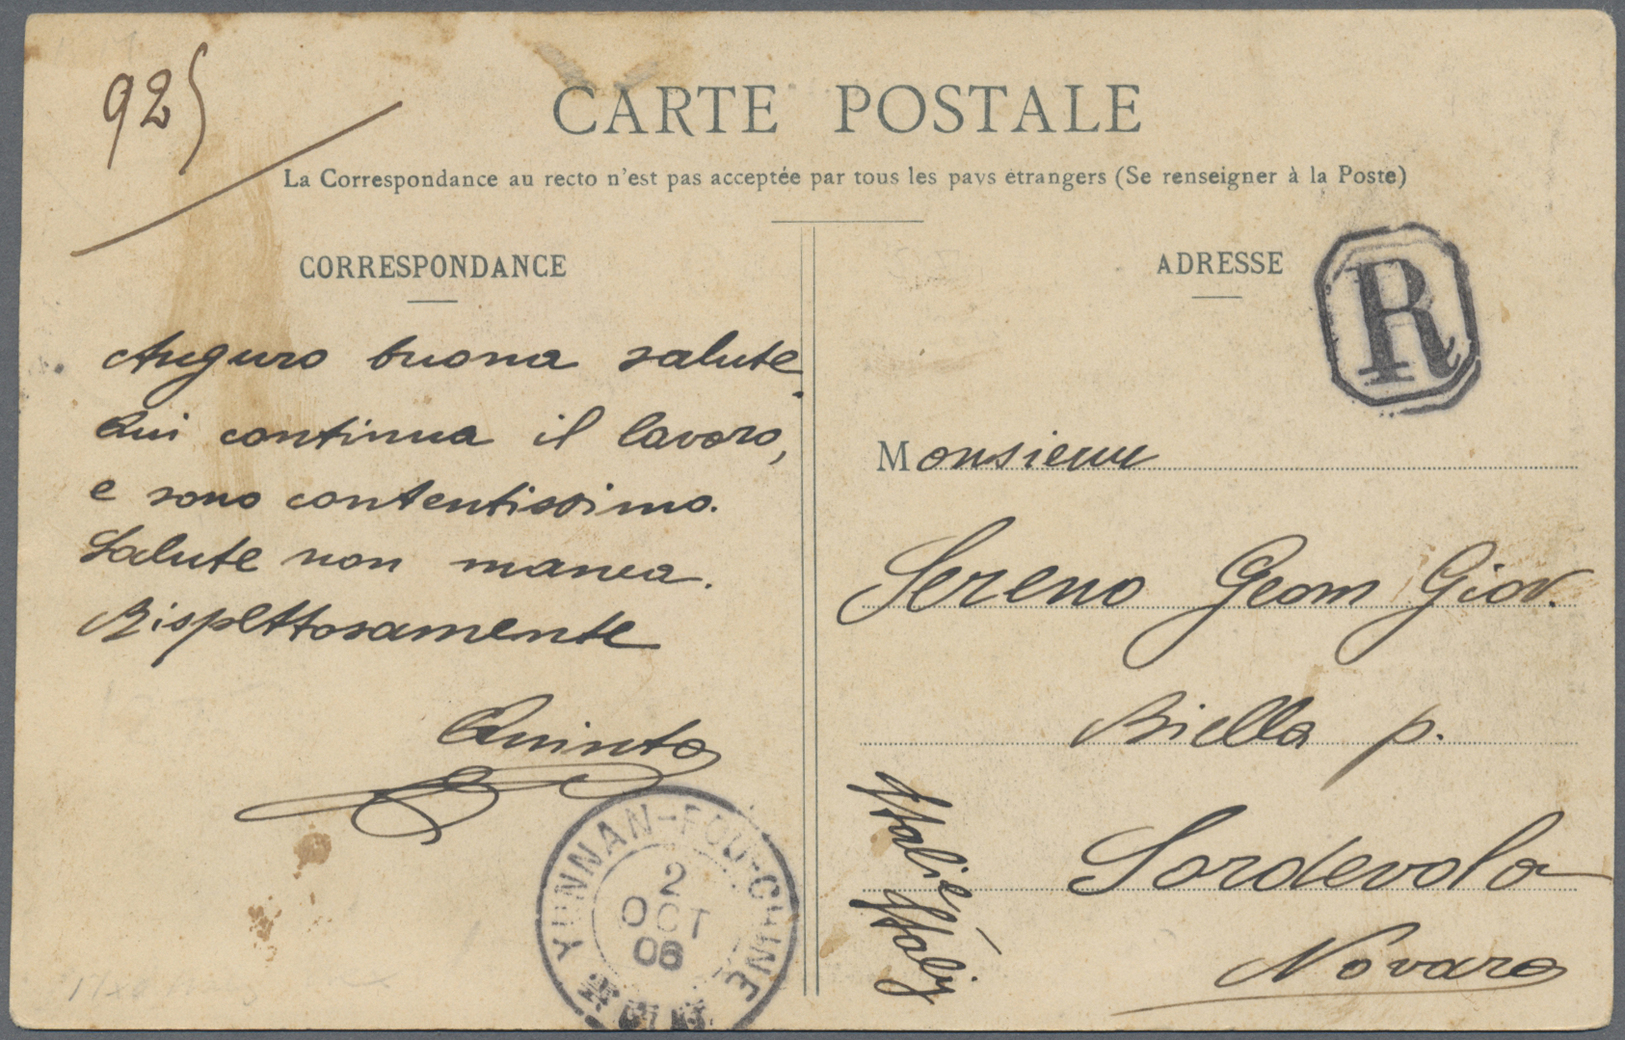 925
CARTE POSTALE
La Correspondance au recto n'est pas acceptée par tous les pays étrangers (Se renseigner à la Poste)
CORRESPONDANCE
Auguro buona salute.
Qui continua il lavoro,
e sono contentissimo.
Salute non manca.
Rispettosamente
Quinto
YUNNAN-FOU-CHINE
2
OCT
06
ADRESSE
R
Monsieur
Sereno Geom Giov.
Biella p.
Sordevolo
Novara
Italie Italy